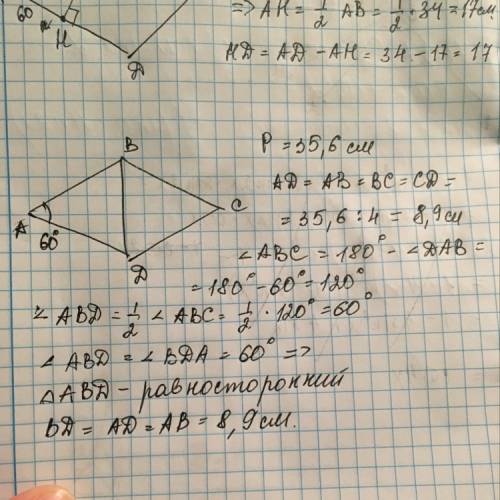 60°
H
D
=> AH = 1/2 AB = 1/2 · 34 = 17см
HD = AD - AH = 34 - 17 = 17
B
A
60°
C
D
P = 35,6 см
AD = AB = BC = CD =
= 35,6 : 4 = 8,9см
∠ABC = 180° - ∠DAB =
= 180° - 60° = 120°
∠ABD = 1/2 ∠ABC = 1/2 · 120° = 60°
∠ABD = ∠BDA = 60° =>
△ABD - равносторонний
BD = AD = AB = 8,9см.